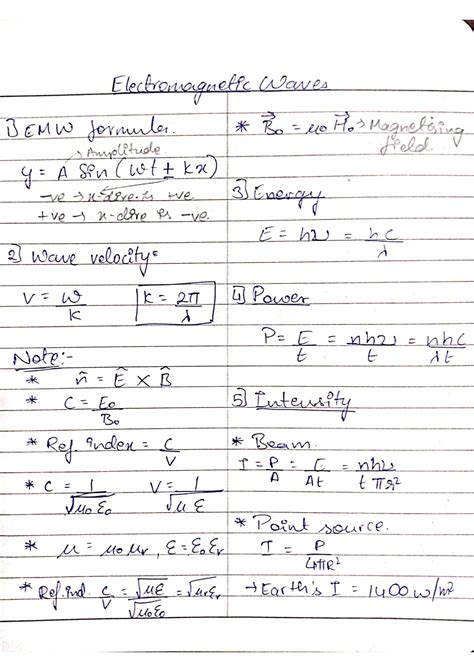 Electromagnetic Waves
1] EMW formula.
→ Amplitude
y = A Sin (ωt ± kx)
-ve → x-dire. is +ve.
+ve → x-dire is -ve.
2] Wave velocity:
V = ω/k    k = 2π/λ
Note:-
* n̂ = Ê × B̂
* C = E₀/B₀
* Ref index = C/V
* C = 1/√μ₀ε₀    V = 1/√με
* μ = μ₀μr, ε = ε₀εr
* Ref.ind. C/V = √με/√μ₀ε₀ = √μrεr
* B⃗₀ = μ₀ H⃗₀ → Magnetising
field
3] Energy
E = hν = hc/λ
4] Power
P = E/t = nhν/t = nhc/λt
5] Intensity
* Beam.
I = P/A = E/At = nhν/tπr²
* Point source.
I = P/4πR²
→ Earth's I = 1400 w/m²